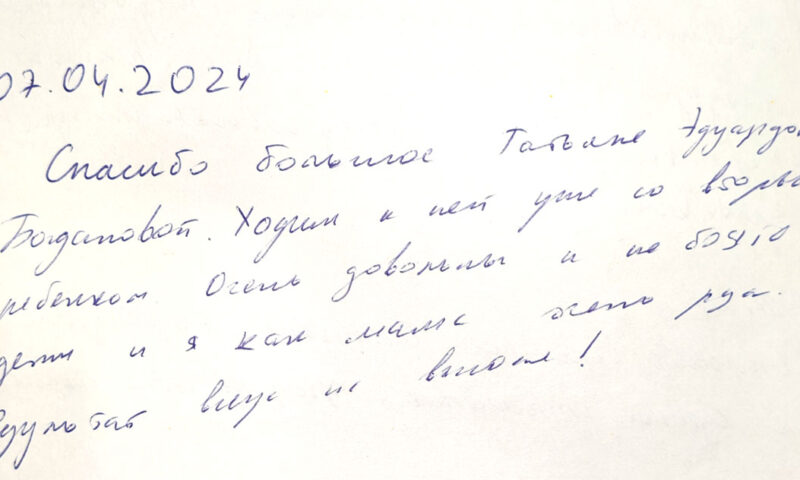 07.04.2024
Спасибо большое Татьяне Эдуардов
Богдановой. Ходим к ней уже со вторы
ребенком Очень довольны и не боятс
дети и я как мама очень рада.
езультат